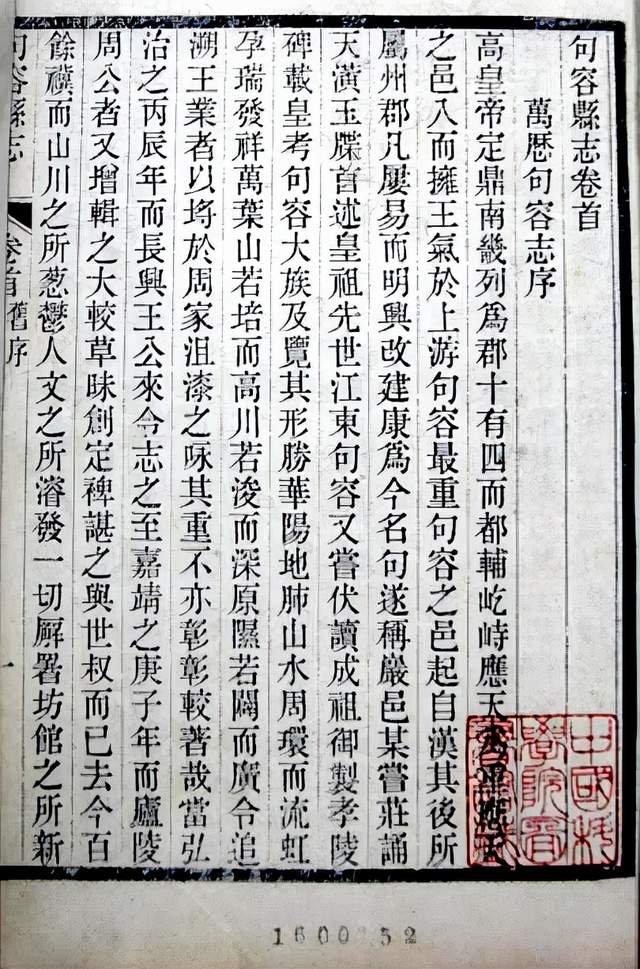 句容縣志卷首
萬歷句容志序
高皇帝定鼎南畿列爲郡十有四而都輔屹峙應天
之邑八而擁王氣於上游句容最重句容之邑起自漢其後所
屬州郡凡屢易而明興改建康爲今名句遂稱巖邑某嘗莊誦
天潢玉牒首述皇祖先世江東句容又嘗伏讀成祖御製孝陵
碑載皇考句容大族及覽其形勝華陽地肺山水周環而流虹
孕瑞發祥萬葉山若培而高川若浚而深原隰若闢而廣令追
溯王業者以埓於周家沮漆之咏其重不亦彰彰較著哉當弘
治之丙辰年而長興王公來令志之至嘉靖之庚子年而廬陵
周公者又增輯之大較草昧創定裨諶之與世叔而已去今百
餘禩而山川之所葱鬱人文之所濬發一切廨署坊館之所新
句容縣志
卷首舊序
一
中國科
學院
1600 52